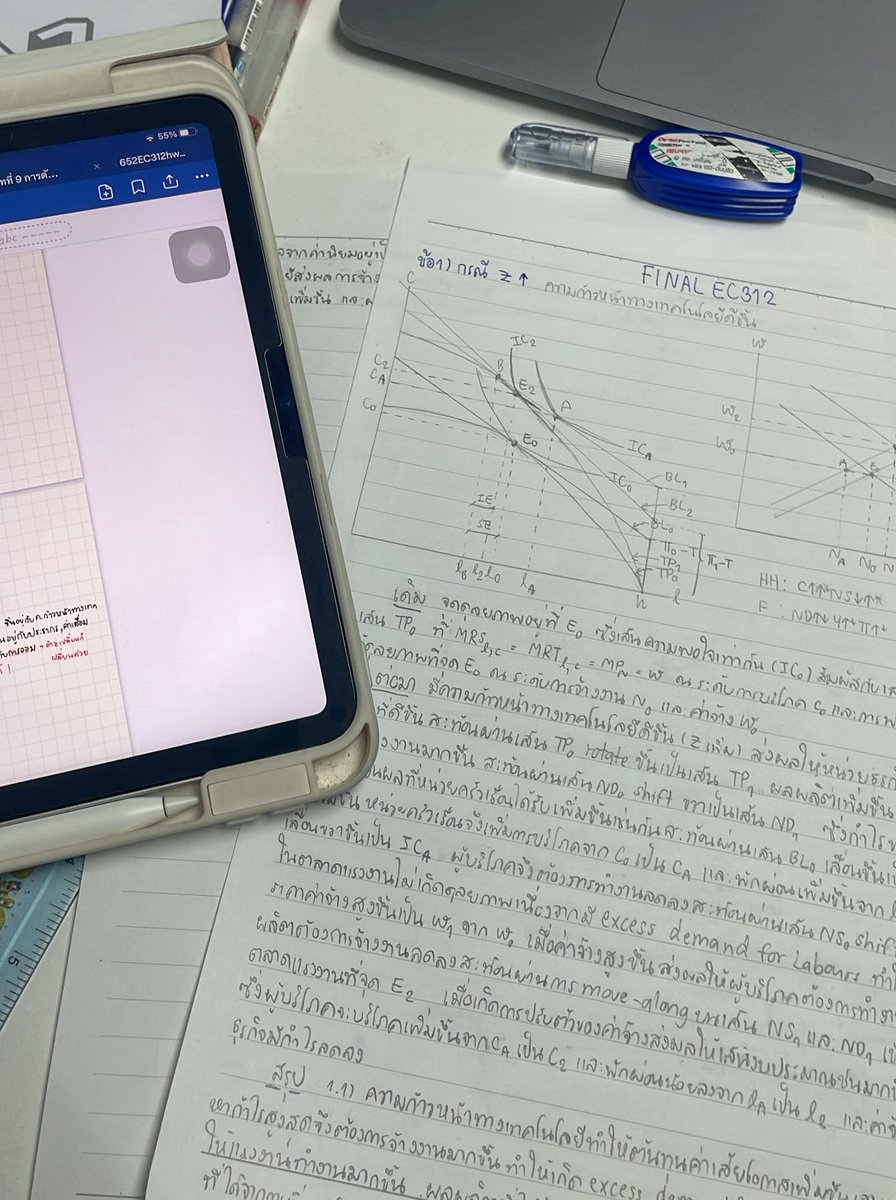 55%
ที่ 9 การต้... × 652EC312hw...
abc
ขึ้นอยู่กับ ก.ก้าวหน้าทางเทค
อยู่กับประชากร, ค่าเสื่อม
เปลี่ยนด้วย
FINAL EC312
ข้อ 1) กรณี Z ↑ ความก้าวหน้าทางเทคโนโลยีดีขึ้น
C
IC2
W
B
E2
C2
CA
A
W2
C0
W0
E0
ICA
IC0
BL1
BL2
BL0
A E0
IE
SE
π0-T
π1-T
TP1
TP0
NA N0 N
lB l2 l0 lA
h l
HH: C↑↑ NS↓↑*
F: ND↑ Y↑ π↑*
เดิม จุดดุลยภาพอยู่ที่ E0 ซึ่งเส้นความพอใจเท่ากัน (IC0) สัมผัสกับเส
เส้น TP0 ที่ MRSl,c = MRTl,c = MPN = W ณ ระดับการบริโภค C0 และการพ
ดุลยภาพที่จุด E0 ณ ระดับการจ้างงาน N0 และค่าจ้าง W0
ต่อมา มีความก้าวหน้าทางเทคโนโลยีดีขึ้น (Z เพิ่ม) ส่งผลให้หน่วยธุรกิ
ที่ดีขึ้น สะท้อนผ่านเส้น TP0 rotate ขึ้นเป็นเส้น TP1 ผลผลิตเพิ่มขึ้น
งงานมากขึ้น สะท้อนผ่านเส้น ND0 shift ขวาเป็นเส้น ND1 ซึ่งกำไรข
นผลที่หน่วยครัวเรือนได้รับเพิ่มขึ้นเช่นกัน สะท้อนผ่านเส้น BL0 เลื่อนขึ้นเ
หน่วยครัวเรือนจึงเพิ่มการบริโภคจาก C0 เป็น CA และพักผ่อนเพิ่มขึ้นจาก l
เลื่อนขวาขึ้นเป็น ICA ผู้บริโภคจึงต้องการทำงานลดลง สะท้อนผ่านเส้น NS0 shift
ในตลาดแรงงานไม่เกิดดุลยภาพเนื่องจากมี excess demand for Labour ทำใ
ราคาค่าจ้างสูงขึ้นเป็น W1 จาก W0 เมื่อค่าจ้างสูงขึ้น ส่งผลให้ผู้บริโภคต้องการทำงา
ผลิตต้องการจ้างงานลดลง สะท้อนผ่านการ move-along บนเส้น NS1 และ ND1 เข้
ตลาดแรงงานที่จุด E2 เมื่อเกิดการปรับตัวของค่าจ้างส่งผลให้เส้นงบประมาณชันมากข
ซึ่งผู้บริโภคจะบริโภคเพิ่มขึ้นจาก CA เป็น C2 และพักผ่อนน้อยลงจาก lA เป็น l2 และค่าจ้
ธุรกิจมีกำไรลดลง
สรุป 1.1) ความก้าวหน้าทางเทคโนโลยีทำให้ต้นทุนค่าเสียโอกาสเพิ่มขึ้น
หากำไรสูงสุดจึงต้องการจ้างงานมากขึ้น ทำให้เกิด excess dema
ให้แรงงานทำงานมากขึ้น ผลผลิต
ที่ได้จาก